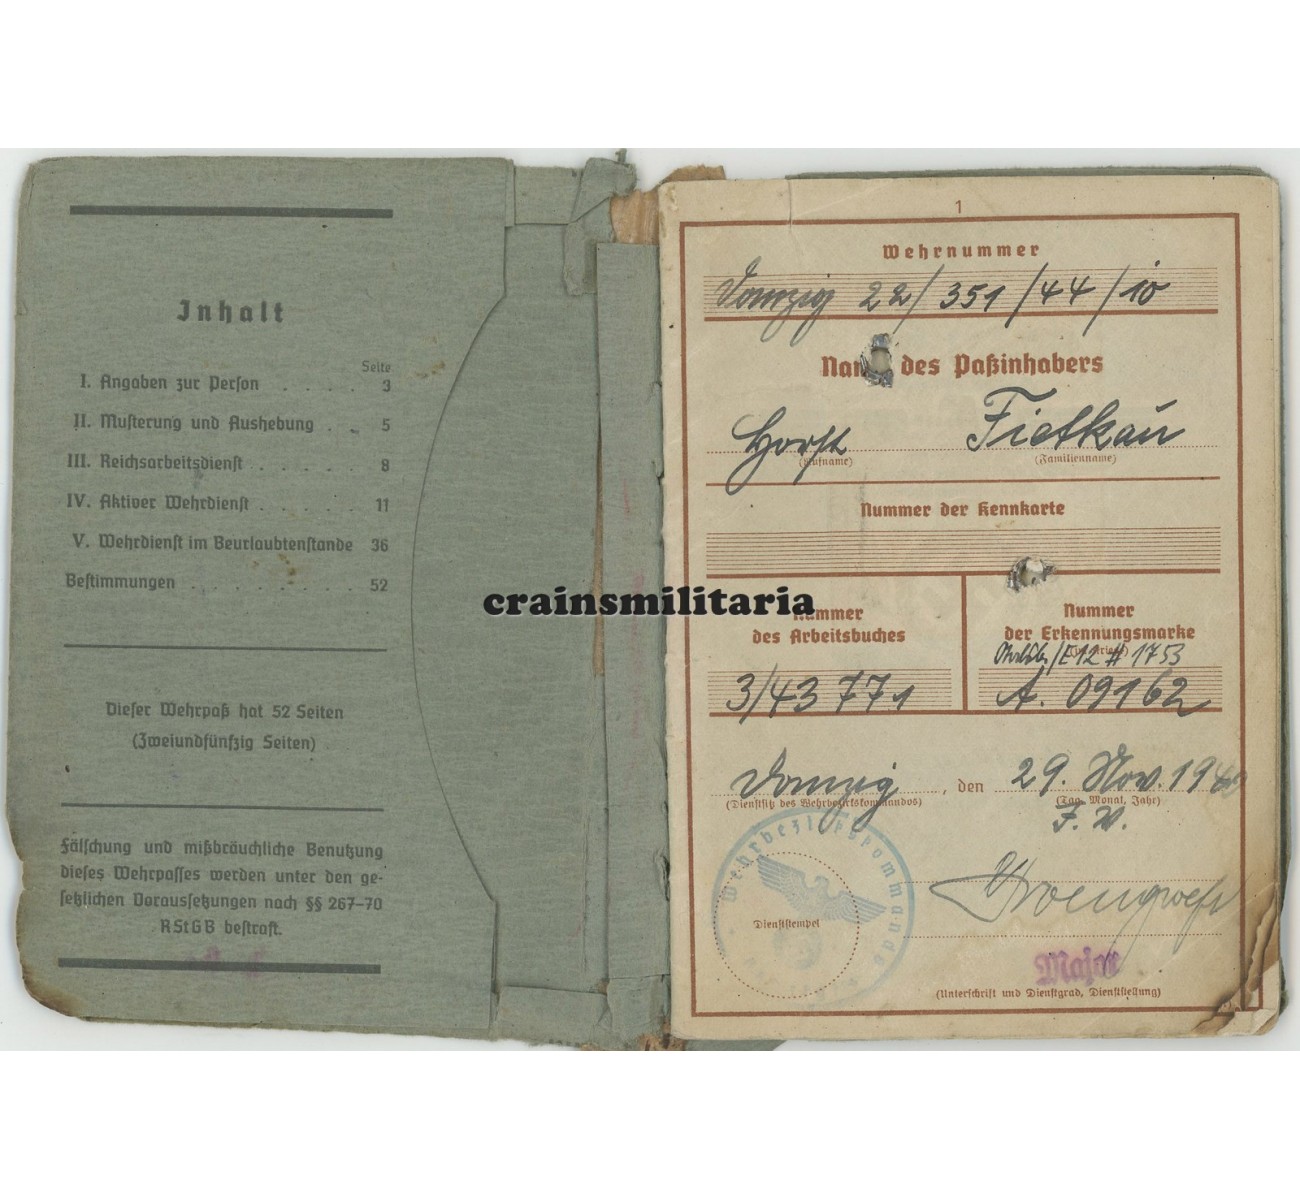 Inhalt
Seite
I. Angaben zur Person . . . . 3
II. Musterung und Aushebung . . 5
III. Reichsarbeitsdienst . . . . . . 8
IV. Aktiver Wehrdienst . . . . . . 11
V. Wehrdienst im Beurlaubtenstande 36
Bestimmungen . . . . . . . . . . 52
Dieser Wehrpaß hat 52 Seiten
(Zweiundfünfzig Seiten)
Fälschung und mißbräuchliche Benutzung
dieses Wehrpasses werden unter den ge-
setzlichen Voraussetzungen nach §§ 267–70
RStGB bestraft.
1
Wehrnummer
Danzig 22/351/44/10
des Paßinhabers
Horst Fietkau
(Rufname) (Familienname)
Nummer der Kennkarte
crainsmilitaria
Nummer
des Arbeitsbuches
3/43 771
Nummer
der Erkennungsmarke
/E 12 # 1753
A. 09162
Danzig, den 29. Nov. 19
(Dienstsitz des Wehrbezirkskommandos) (Tag, Monat, Jahr)
J. V.
Wehrbezirkskommando
Dienststempel
Major
(Unterschrift und Dienstgrad, Dienststellung)